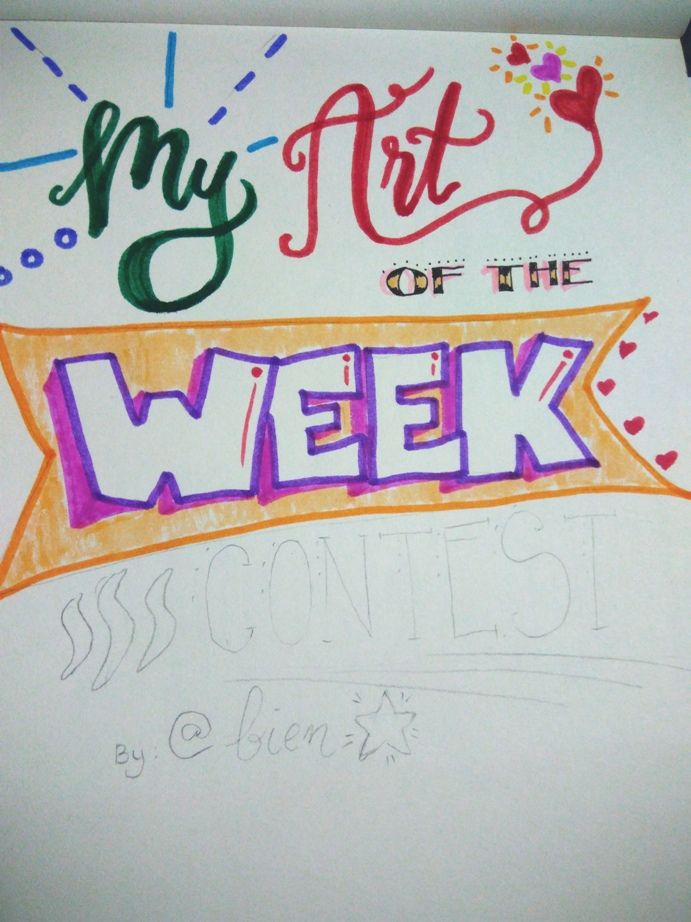 My Art
OF THE
WEEK
CONTEST
By: @bien